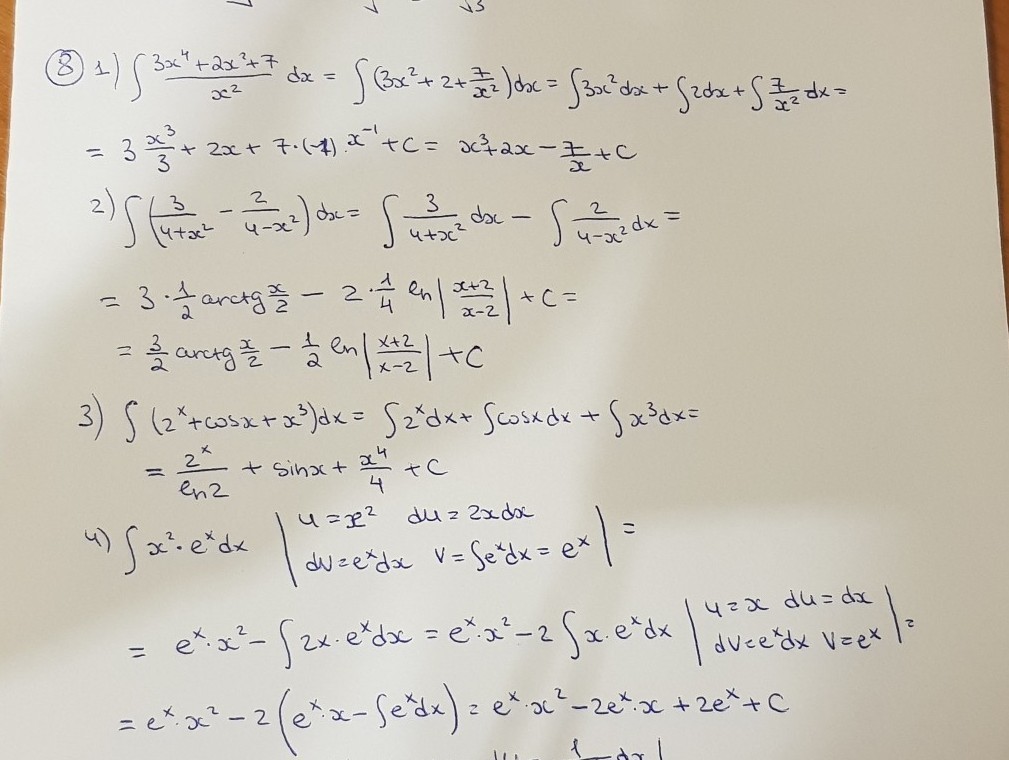 √3
⑧ 1) ∫ (3x⁴+2x²+7)/x² dx = ∫ (3x²+2+7/x²)dx = ∫3x²dx + ∫2dx + ∫ 7/x² dx =
= 3 x³/3 + 2x + 7·(-1) x⁻¹ + C = x³+2x - 7/x + C
2) ∫ (3/(4+x²) - 2/(4-x²)) dx = ∫ 3/(4+x²) dx - ∫ 2/(4-x²) dx =
= 3·1/2 arctg x/2 - 2·1/4 ln|(x+2)/(x-2)| + C =
= 3/2 arctg x/2 - 1/2 ln|(x+2)/(x-2)| + C
3) ∫ (2ˣ+cosx+x³)dx = ∫2ˣdx + ∫cosxdx + ∫x³dx =
= 2ˣ/ln2 + sinx + x⁴/4 + C
4) ∫ x²·eˣdx | u = x² du = 2xdx
dv = eˣdx v = ∫eˣdx = eˣ | =
= eˣ·x² - ∫2x·eˣdx = eˣ·x² - 2∫x·eˣdx | u = x du = dx
dv = eˣdx v = eˣ | =
= eˣ·x² - 2(eˣ·x - ∫eˣdx) = eˣ·x² - 2eˣ·x + 2eˣ + C